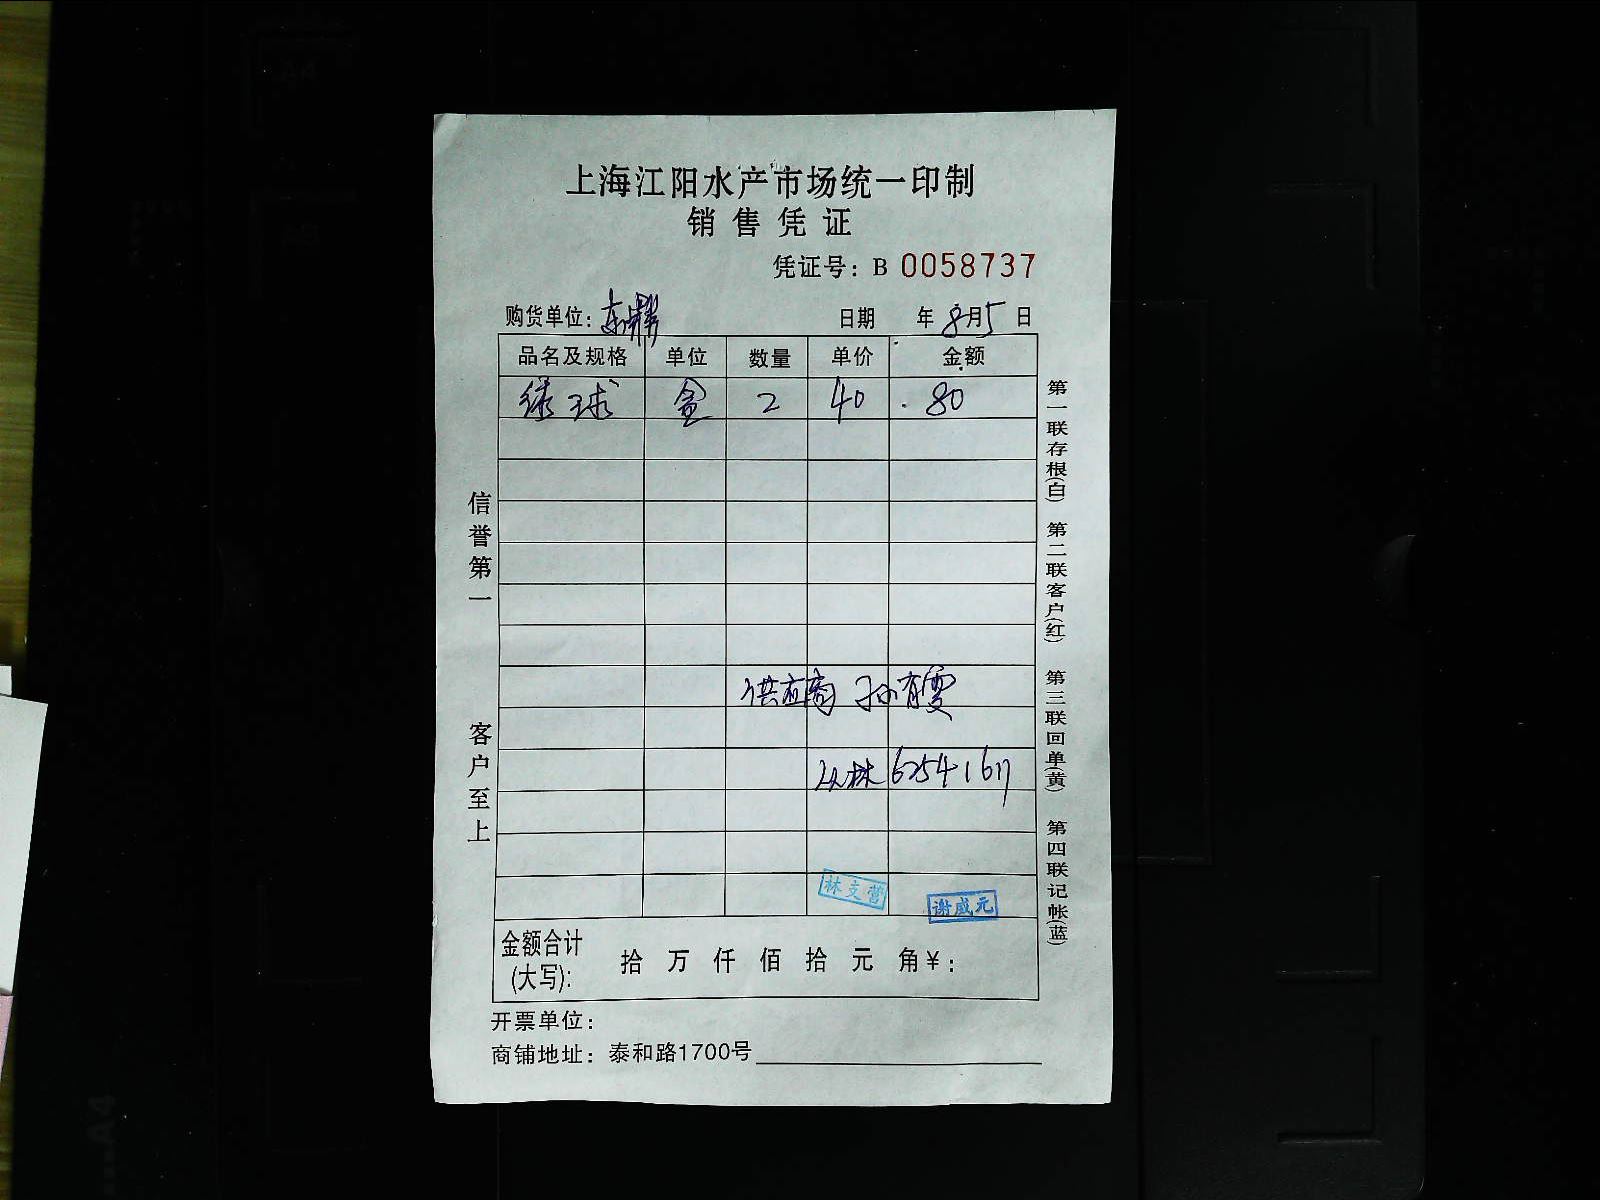 上海江阳水产市场统一印制
销售凭证
凭证号：B 0058737
购货单位：东鼎 日期 年8月5日
品名及规格 单位 数量 单价 金额
绿球 盒 2 40 80
供应商 孙育雯
丛林 62541617
林支营
谢威元
金额合计(大写): 拾 万 仟 佰 拾 元 角¥:
开票单位:
商铺地址: 泰和路1700号
信誉第一
客户至上
第一联存根(白)
第二联客户(红)
第三联回单(黄)
第四联记帐(蓝)
A4